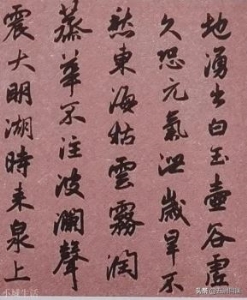 地湧出白玉壺谷虛
久恐元氣洩歲旱不
愁東海枯雲霧潤
蒸華不注波瀾聲
震大明湖時来泉上